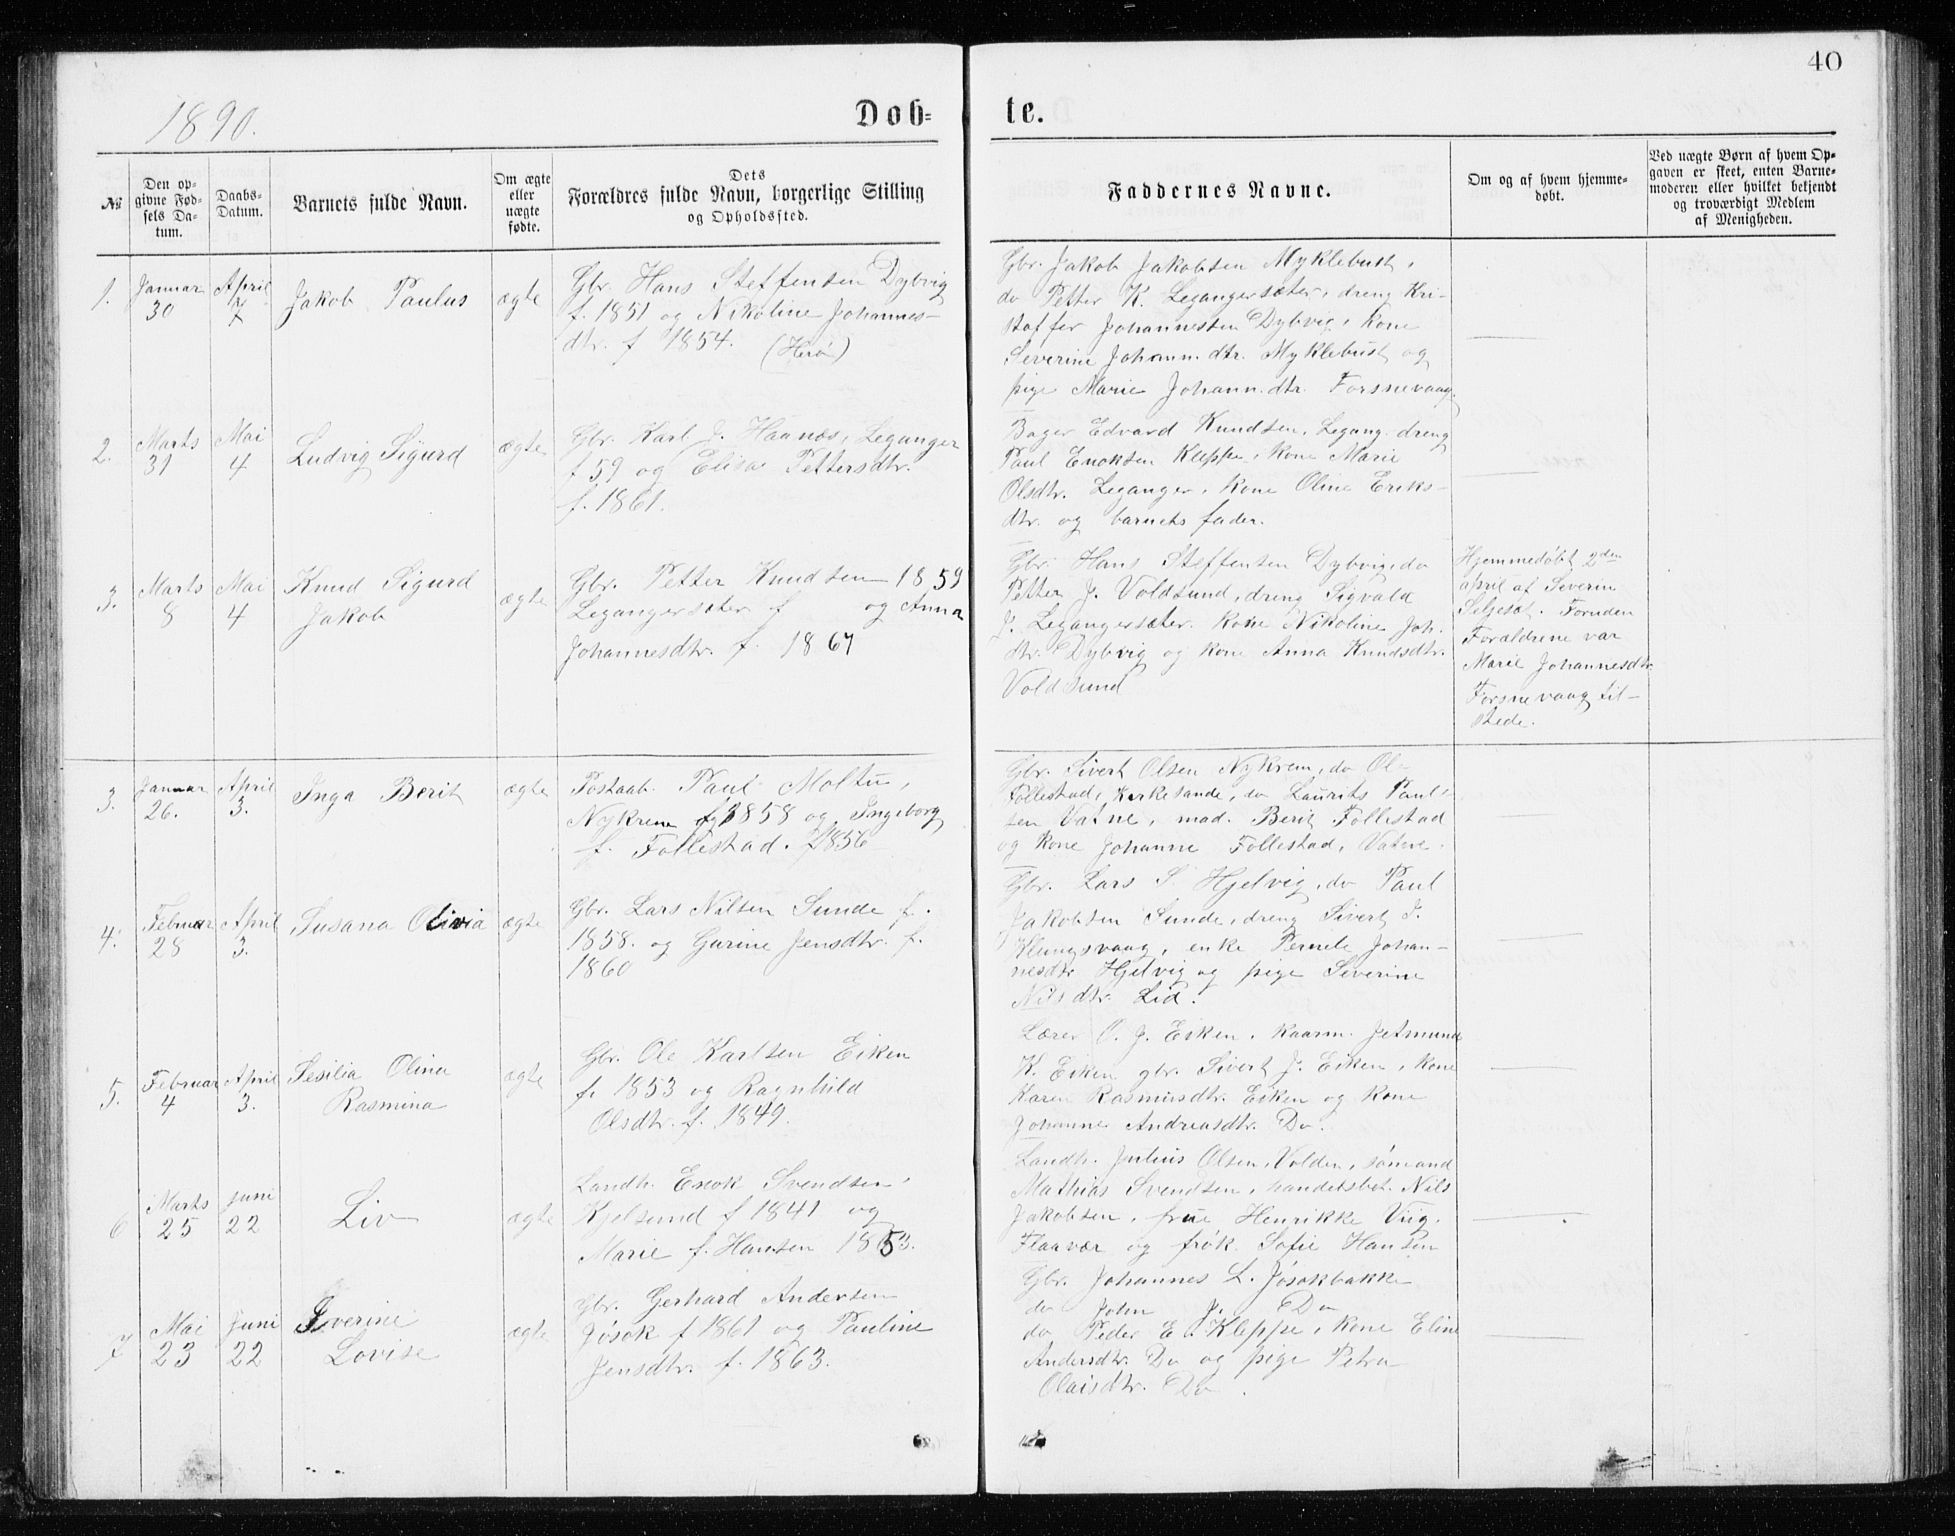 40
1890.
Døb-
te.
№
Den op-
givne Fød-
sels Da-
tum.
Daabs-
Datum.
Barnets fulde Navn.
Om ægte
eller
uægte
fødte.
Dets
Forældres fulde Navn, borgerlige Stilling
og Opholdssted.
Faddernes Navne.
Om og af hvem hjemme-
døbt.
Ved uægte Børn af hvem Op-
gaven er skeet, enten Barne-
moderen eller hvilket bekjendt
og troværdigt Medlem
af Menigheden.
1.
Januar
30
April
7
Jakob Paulus
ægte
Gbr. Hans Steffensen Dybvig
f. 1851 og Nikoline Johannes-
dtr. f 1854. (Herø)
Gbr. Jakob Jakobsen Myklebust,
do Petter K. Legangersæter, dreng Kri-
stoffer Johannessen Dybvig, kone
Severine Johann. dtr. Myklebust og
pige Marie Johann. dtr. Forsnevaag.
2.
Marts
31
Mai
4
Ludvig Sigurd
ægte
Gbr. Karl J. Haanæs, Leganger
f 59 og Elisa Pettersdtr.
f. 1861.
Bager Edvard Knudsen, Legang. dreng
Paul Enoksen Kleppe, kone Marie
Olsdtr. Leganger, kone Oline Eriks-
dtr. og barnets fader.
3.
Marts
8
Mai
4
Knud Sigurd
Jakob
ægte
Gbr. Petter Knudsen 1859
Legangersæter f og Anna
Johannesdtr. f. 1867
Gbr. Hans Steffensen Dybvig, do
Petter J. Voldsund, dreng Sigvald
J. Legangersæter. kone Nikoline Joh.
dtr. Dybvig og kone Anna Knudsdtr.
Voldsund
Hjemmedøbt 2den
april af Severin
Seljeset. Foruden
Forældrene var
Marie Johannesdtr
Forsnevaag til-
stede.
3.
Januar
26.
April
3.
Inga Berit
ægte
Postaab. Paul Moltu,
Nykrem f 1858 og Ingeborg
f. Follestad. f 1856
Gbr. Sivert Olsen Nykrem, do Ol-
Follestad, Kirkesande, do Laurits Paul-
sen Vatne, mad. Berit Follestad
og kone Johanne Follestad, Vatne.
4.
Februar
28
April
3.
Susana Olivia
ægte
Gbr. Lars Nilsen Sunde f.
1858. og Gurine Jensdtr. f.
1860
Gbr. Lars S. Hjelvig, do Paul
Jakobsen Sunde, dreng Sivert J.
Klungsvaag, enke Pernele Johan-
nesdtr Hjelvig og pige Severine
Nilsdtr. Lid.
5.
Februar
4
April
3.
Sesilia Olina
Rasmina
ægte
Gbr. Ole Karlsen Eiken
f. 1853 og Ragnhild
Olsdtr. f. 1849.
Lærer O. J. Eiken, kaarm. Jetmund
K. Eiken gbr. Sivert J. Eiken, kone
Karen Rasmusdtr. Eiken og kone
Johanne Andreasdtr. Do.
6
Marts
25
Juni
22
Liv
ægte
Landh. Enok Svendsen,
Kjelsund f 1841 og
Marie f. Hansen 1853.
Landh. Julius Olsen, Volden, sømand
Mathias Svendsen, handelsbet. Nils
Jakobsen, frue Henrikke Viig,
Flaavær og frøk. Sofie Hansen
7
Mai
23
Juni
22
Iverine
Lovise
ægte
Gbr. Gerhard Andersen
Jøsok f 1861 og Pauline
Jensdtr. f. 1863.
Gbr. Johannes L. Jøsokbakke
do John J. Do
do Peder E. Kleppe, kone Eline
Andersdtr. Do og pige Petra
Olaisdtr. Do.